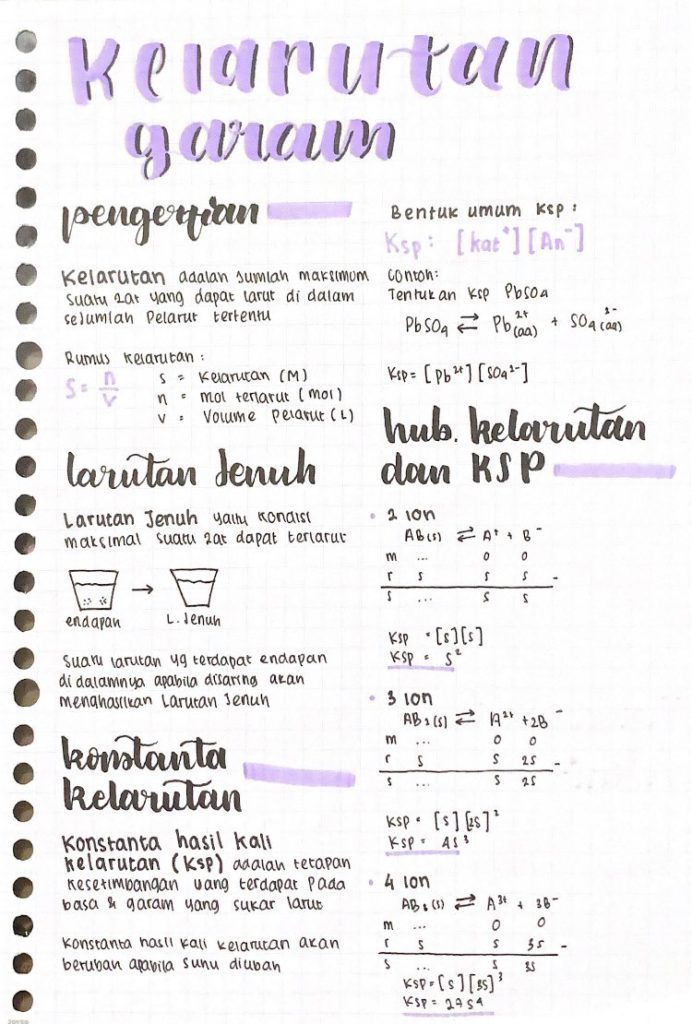 Kelarutan
garam
pengertian
Kelarutan adalah Jumlah maksimum
suatu zat yang dapat larut di dalam
sejumlah Pelarut tertentu
Rumus Kelarutan :
S = n/v
s = Kelarutan (M)
n = mol terlarut (mol)
v = Volume Pelarut (L)
larutan Jenuh
Larutan Jenuh yaitu Kondisi
maksimal suatu zat dapat terlarut
endapan → L. Jenuh
Suatu larutan yg terdapat endapan
di dalamnya apabila disaring akan
menghasilkan Larutan Jenuh
konstanta
kelarutan
Konstanta hasil kali
kelarutan (Ksp) adalah tetapan
Kesetimbangan yang terdapat Pada
basa & garam yang sukar larut
Konstanta hasil kali kelarutan akan
berubah apabila suhu diubah
Bentuk umum Ksp :
Ksp : [kat⁺][An⁻]
Contoh:
Tentukan Ksp PbSO4
PbSO4 ⇄ Pb²⁺(aq) + SO4²⁻(aq)
Ksp = [Pb²⁺][SO4²⁻]
hub. kelarutan
dan KSP
• 2 Ion
AB(s) ⇄ A⁺ + B⁻
m ... 0 0
r s s s -
s ... s s
Ksp = [s][s]
Ksp = s²
• 3 Ion
AB2(s) ⇄ A²⁺ + 2B⁻
m ... 0 0
r s s 2s -
s ... s 2s
Ksp = [s][2s]²
Ksp = 4s³
• 4 Ion
AB3(s) ⇄ A³⁺ + 3B⁻
m ... 0 0
r s s 3s -
s ... s 3s
Ksp = [s][3s]³
Ksp = 27s4